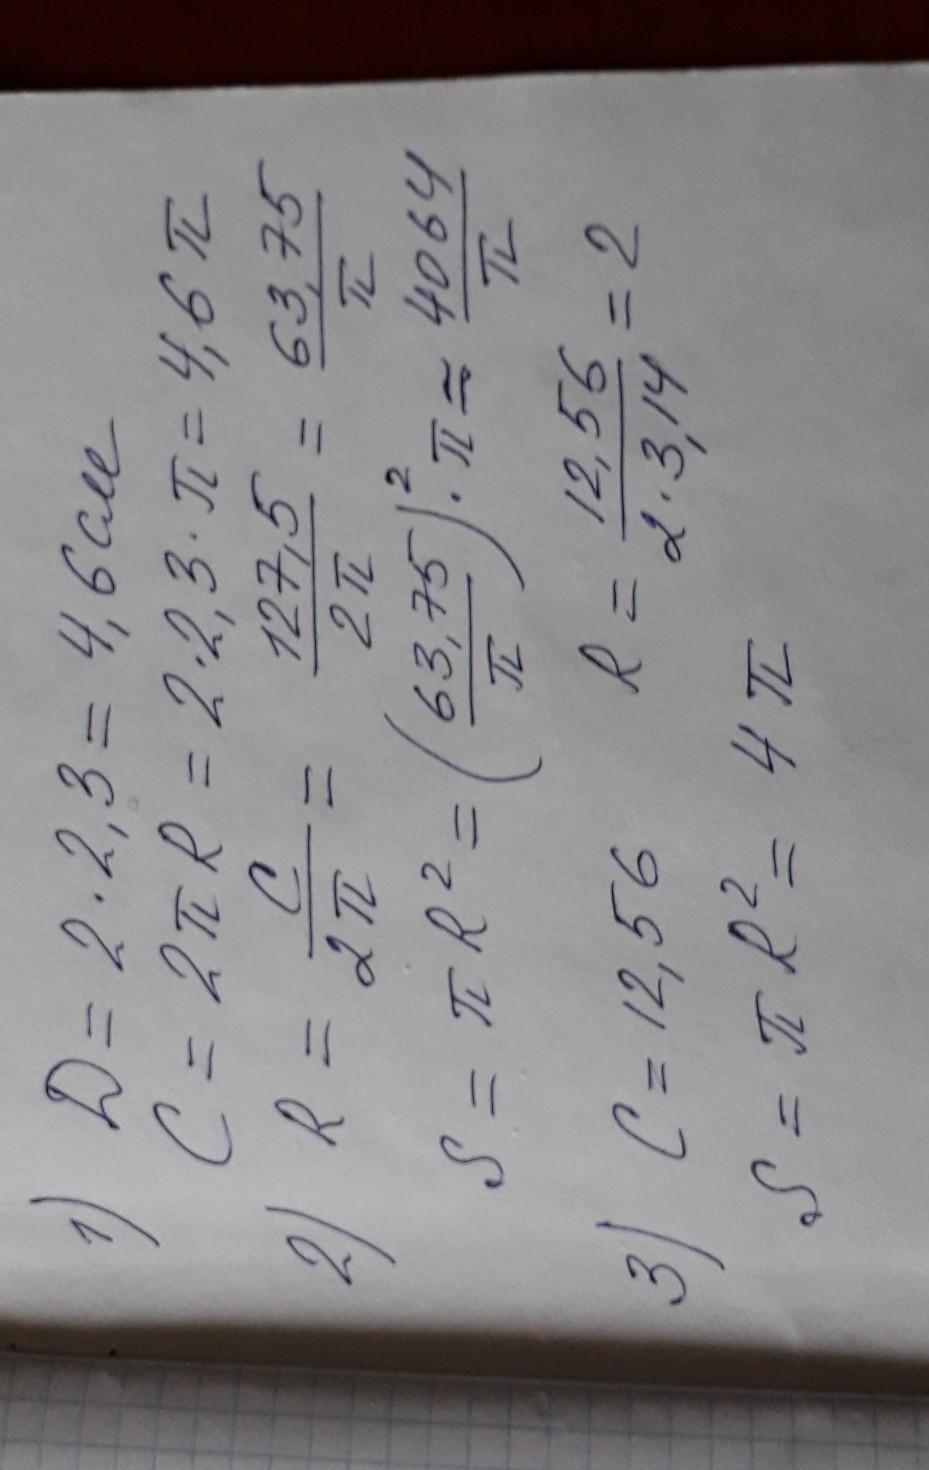 1) D = 2 · 2,3 = 4,6 см
C = 2πR = 2 · 2,3 · π = 4,6 π
2) R = C/2π = 127,5/2π = 63,75/π
S = πR² = (63,75/π)² · π ≈ 4064/π
3) C = 12,56 R = 12,56/2 · 3,14 = 2
S = πR² = 4π